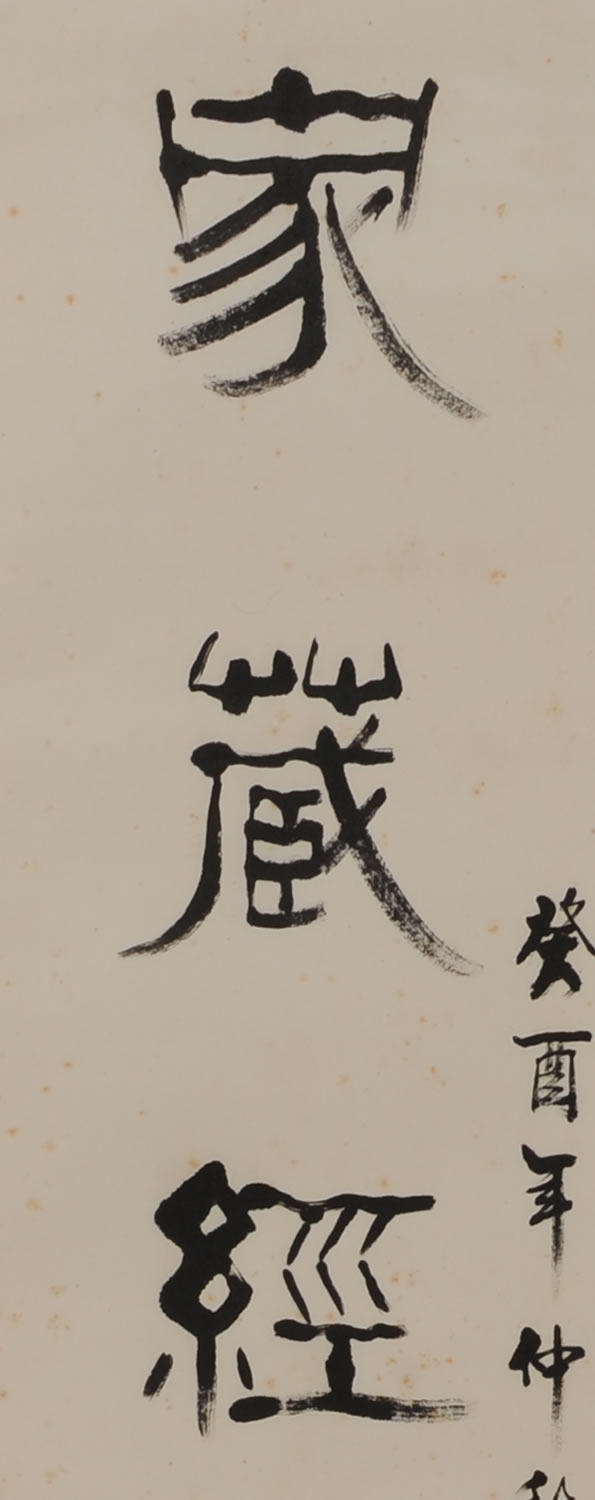 家藏經
癸酉年仲